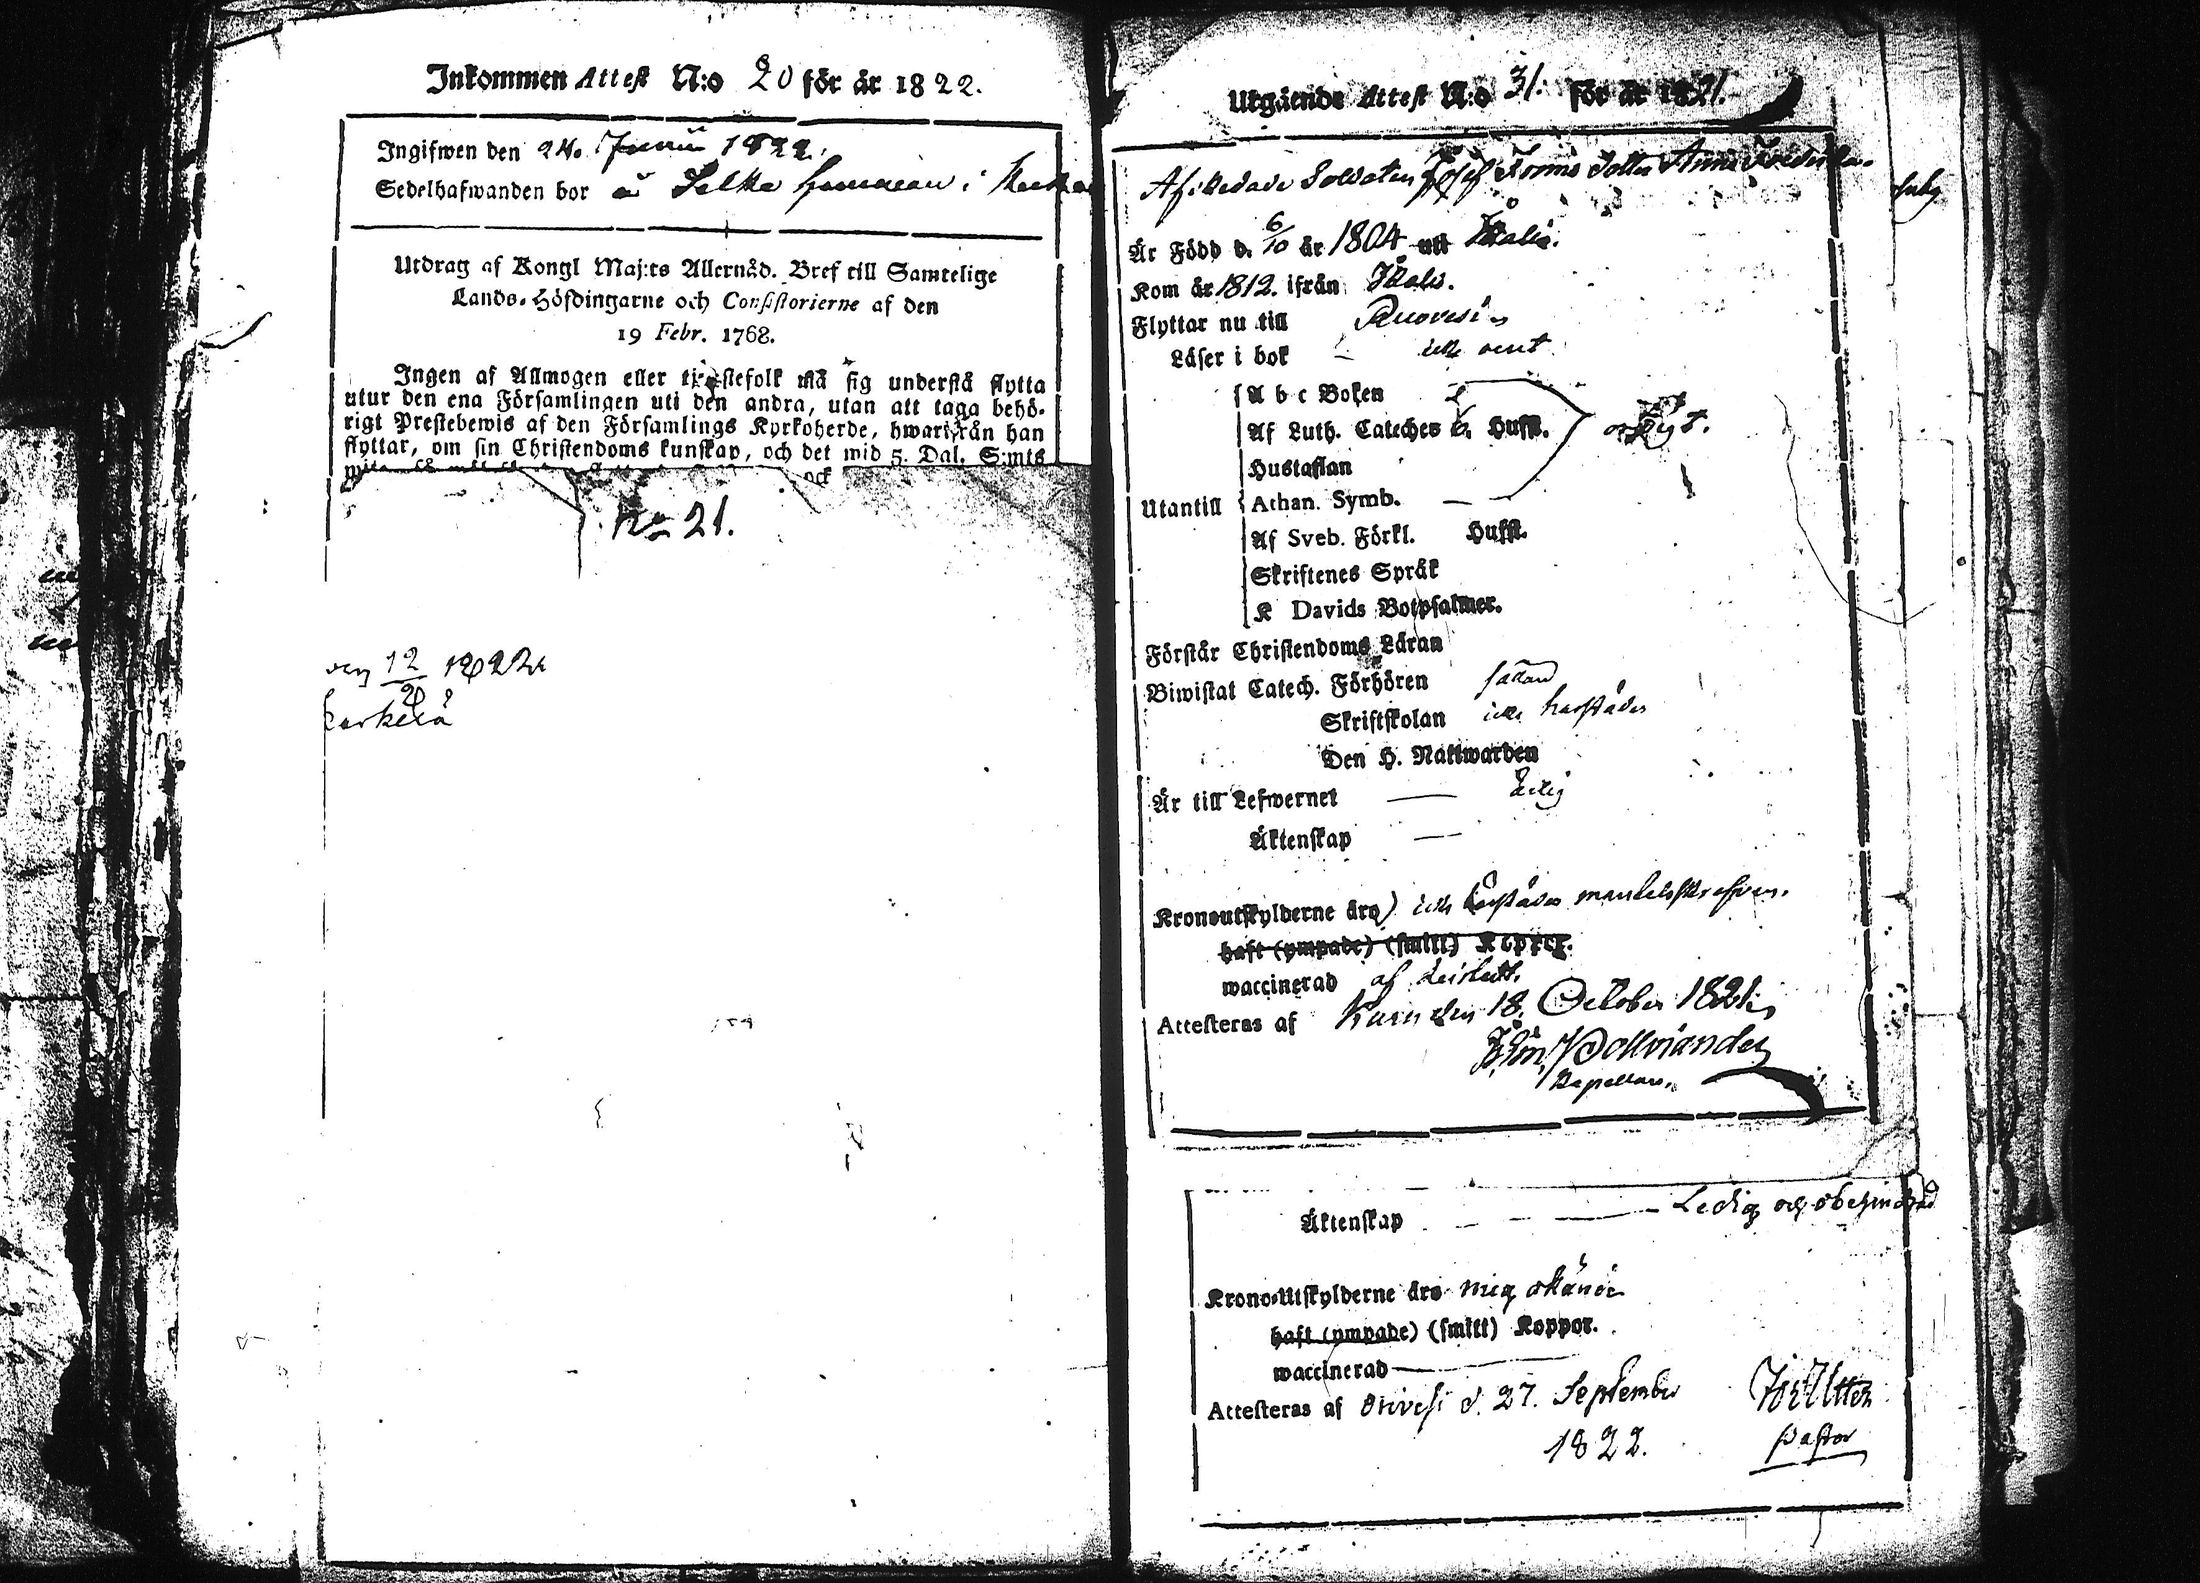 Inkommen Attest N:o 20 för år 1822.
Ingifwen den 24. Junii 1822.
Sedelhafwanden bor å Selka
Utdrag af Kongl Maj:ts Allernåd. Bref till Samtelige
Lands-Höfdingarne och Consistorierne af den
19 Febr. 1768.
Ingen af Allmogen eller tjenstefolk må sig understå flytta
utur den ena Församlingen uti den andra, utan att taga behö-
rigt Prestebewis af den Församlings Kyrkoherde, hwarifrån han
flyttar, om sin Christendoms kunskap, och det wid 5. Dal. S:mts
ock
No 21.
den 12/20 1822
Karkela
Utgående Attest N:o 31. för år 1821.
Afskedade Soldaten Josef Dotter Anna Fredrika
Är Född d. 6/10 år 1804 uti Ikalis.
Kom år 1812. ifrån Ikalis.
Flyttar nu till Ruovesi
Läser i bok – icke rent
Utantill
A b c Boken
Af Luth. Cateches 6. Hufst.
Hustaflan
Athan. Symb. –
Af Sveb. Förkl. Hufst.
Skriftenes Språk
K Davids Botpsalmer.
Förstår Christendoms Läran
Biwistat Catech. Förhören sällan
Skriftskolan icke härstädes
Den H. Nattwarden
Är till Lefwernet — Ledig
Äktenskap —
Kronoutskylderne äro) icke härstädes mantalsskrefven.
haft (ympade) (smitt) Koppor.
waccinerad af
Attesteras af Kuru den 18. October 1821.
Kapellan.
Äktenskap — Ledig och obehindrad
Krono-Utskylderne äro mig okände
haft (ympade) (smitt) Koppor.
waccinerad —
Attesteras af Orivesi d. 27. September
1822.
Pastor